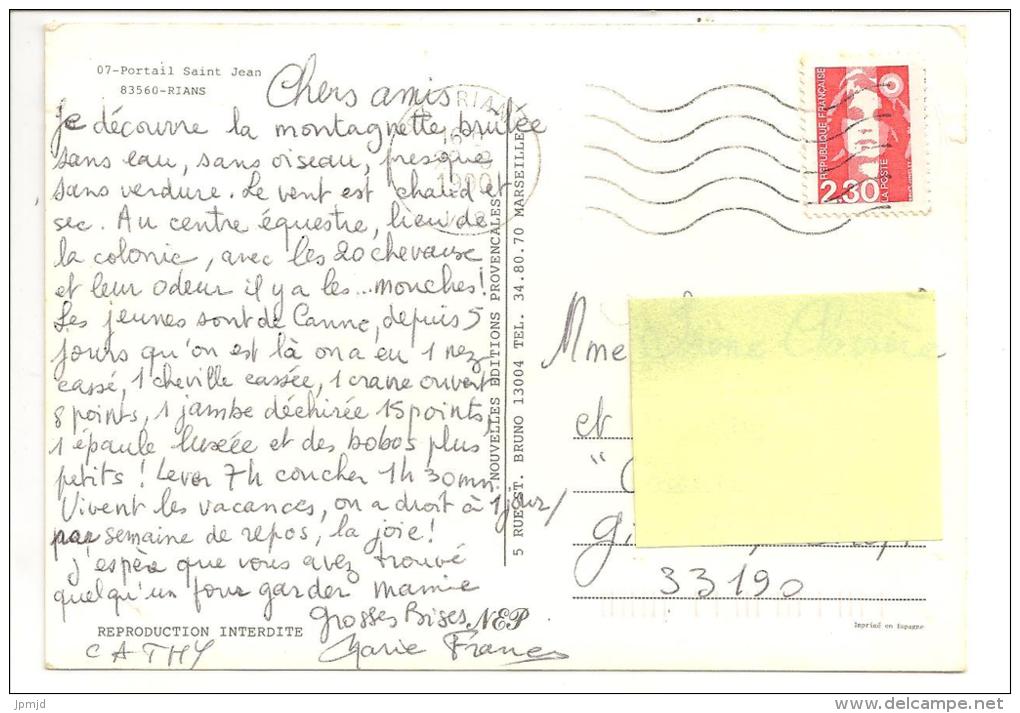 07-Portail Saint Jean
83560-RIANS
Chers amis
je découvre la montagnette brulée
sans eau, sans oiseau, presque
sans verdure. Le vent est chaud et
sec. Au centre équestre, lieu de
la colonie, avec les 20 chevaux
et leur odeur il y a les... mouches!
Les jeunes sont de Canne, depuis 5
jours qu'on est là on a eu 1 nez
cassé, 1 cheville cassée, 1 crane ouvert
8 points, 1 jambe déchirée 15 points,
1 épaule luxée et des bobos plus
petits! Lever 7h coucher 1h 30mn.
Vivent les vacances, on a droit à 1 jour/
par semaine de repos, la joie!
J'espère que vous avez trouvé
quelqu'un pour garder Mamie
Grosses Bises
Marie France
CATHY
REPRODUCTION INTERDITE
NEP
NOUVELLES EDITIONS PROVENCALES
5 RUE ST. BRUNO 13004 TEL. 34.80.70 MARSEILLE
RIANS
1990
REPUBLIQUE FRANÇAISE
2,30
LA POSTE
Mme
et
"C
Gi
33190
Imprimé en Espagne
jpmjd
www.delcampe.net